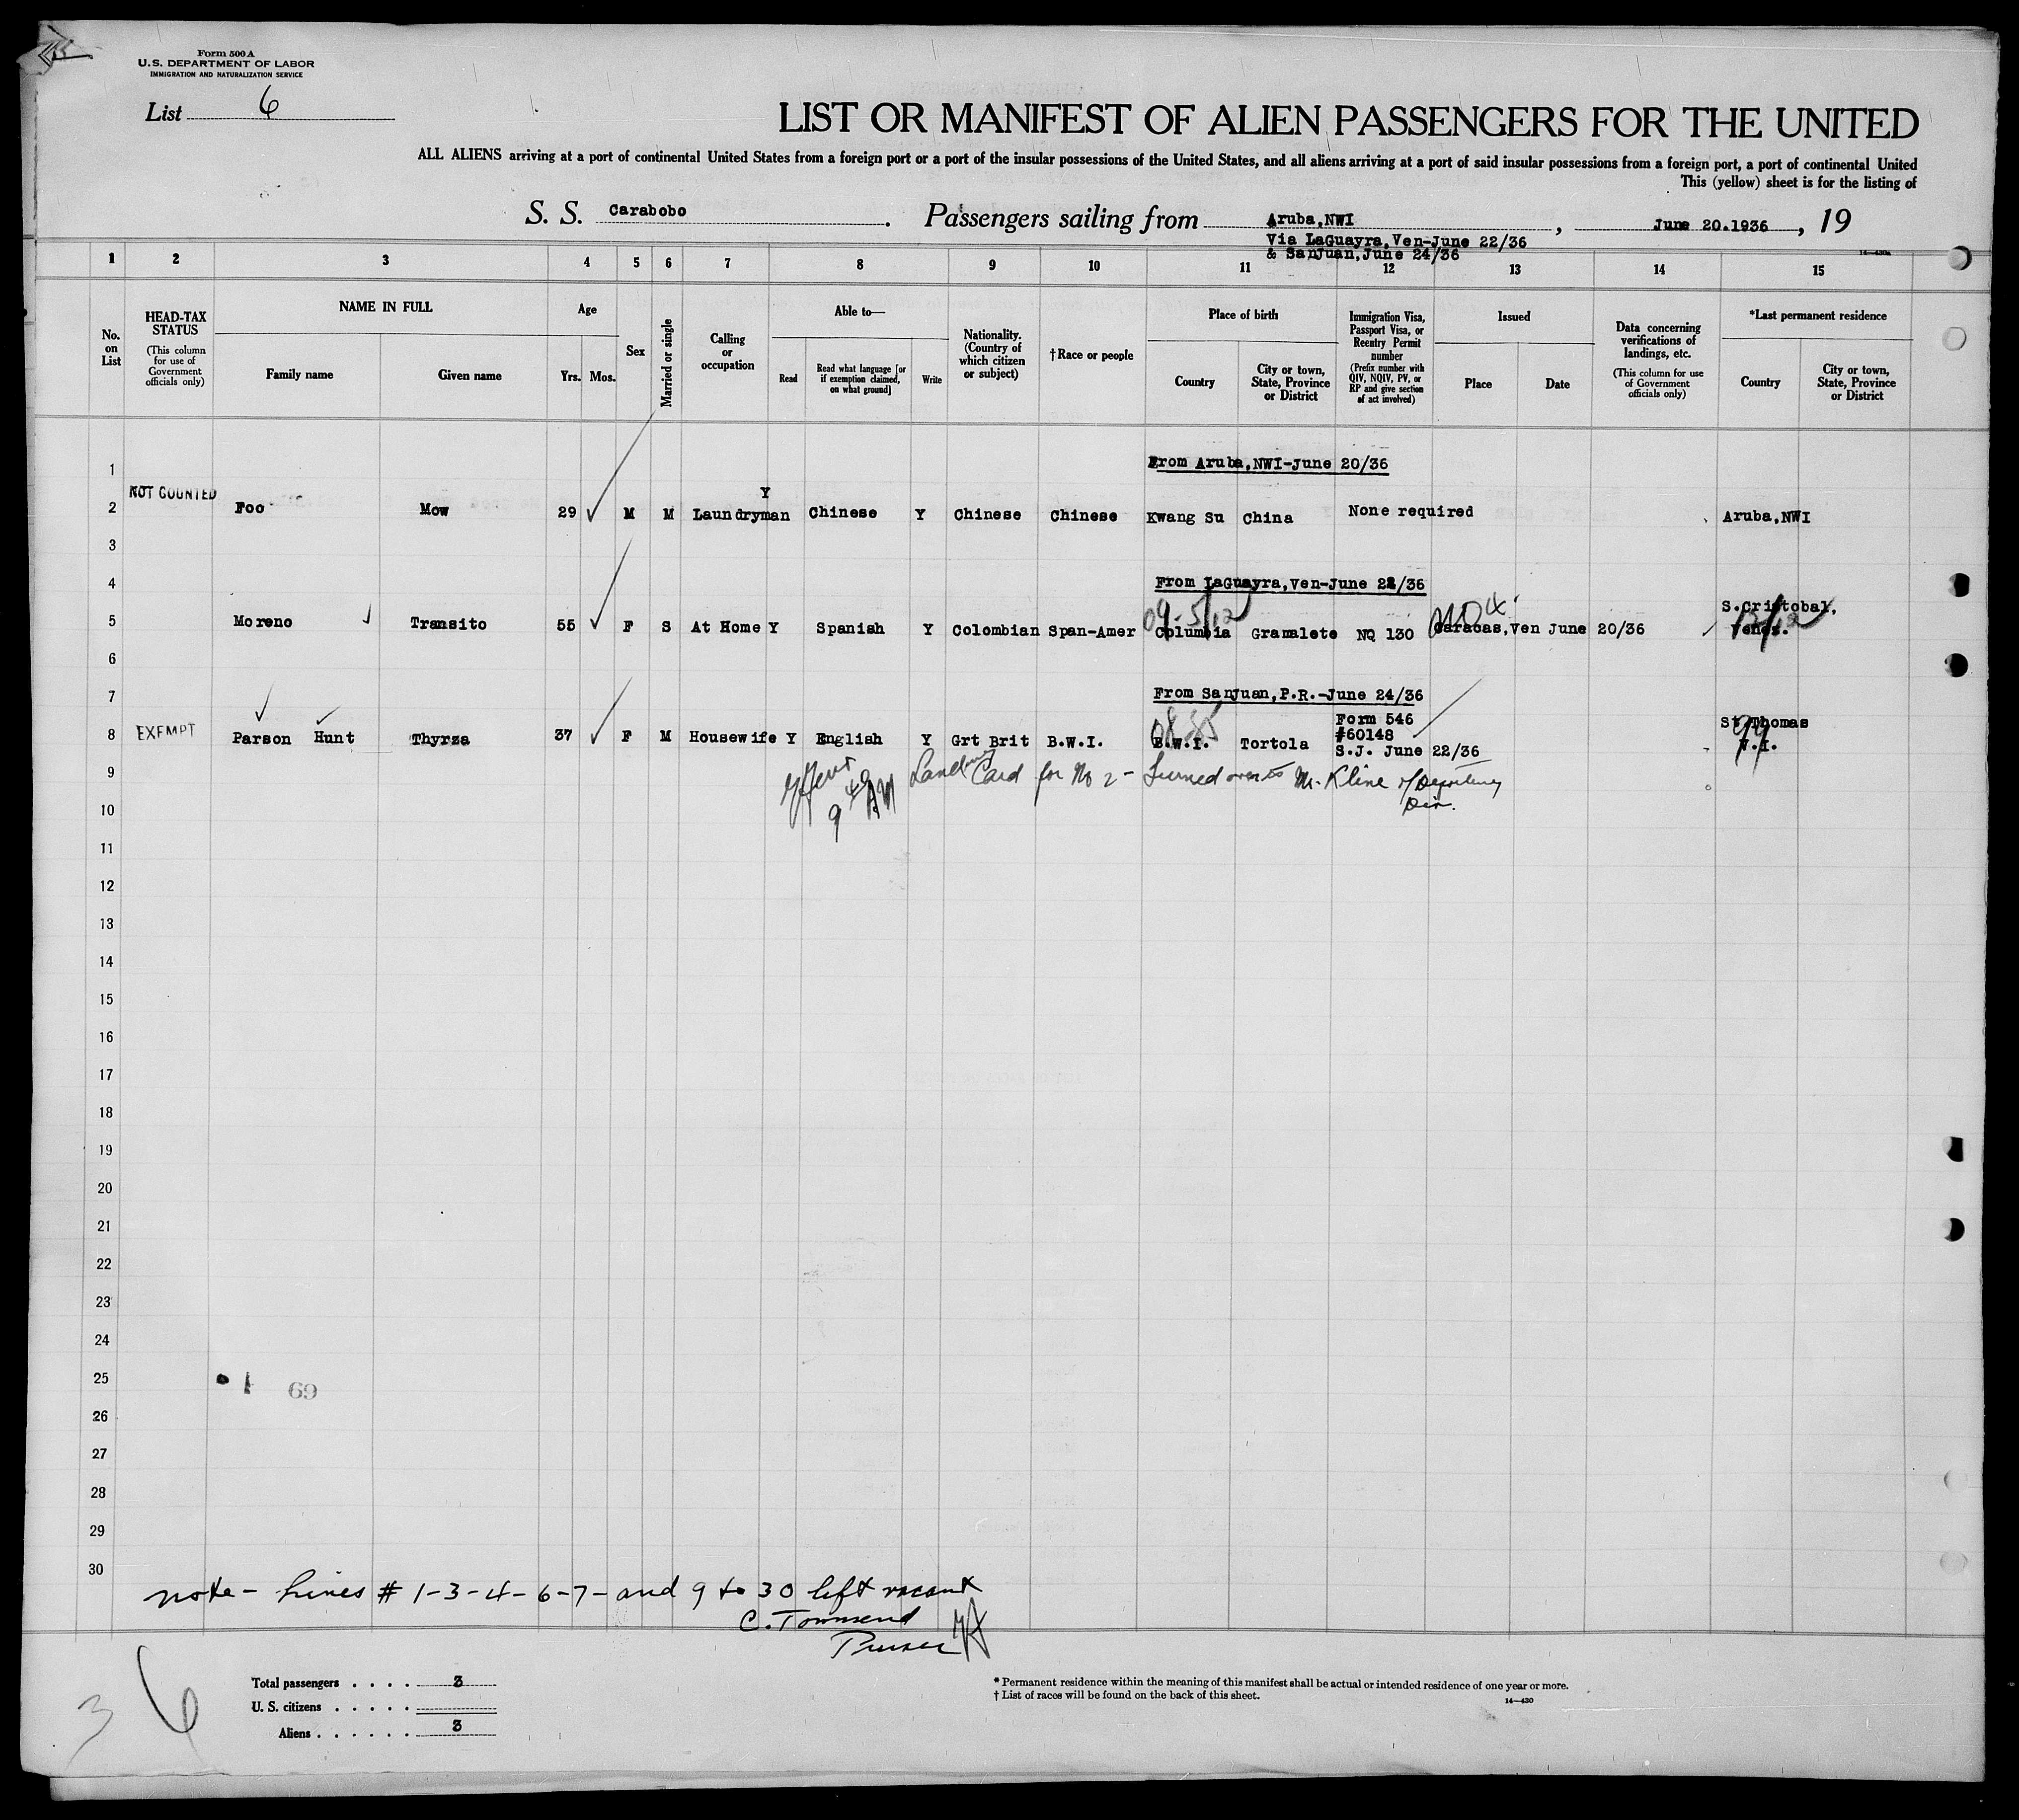 Form 500 A
U.S. DEPARTMENT OF LABOR
IMMIGRATION AND NATURALIZATION SERVICE
List 6
LIST OR MANIFEST OF ALIEN PASSENGERS FOR THE UNITED
ALL ALIENS arriving at a port of continental United States from a foreign port or a port of the insular possessions of the United States, and all aliens arriving at a port of said insular possessions from a foreign port, a port of continental United
This (yellow) sheet is for the listing of
S. S. Carabobo. Passengers sailing from Aruba,NWI, June 20.1936, 19
Via LaGuayra,Ven-June 22/36
& SanJuan,June 24/36
14—430a
1 2 3 4 5 6 7 8 9 10 11 12 13 14 15
No. on List
HEAD-TAX STATUS
(This column for use of Government officials only)
NAME IN FULL
Family name
Given name
Age
Yrs. Mos.
Sex
Married or single
Calling or occupation
Able to—
Read
Read what language [or if exemption claimed, on what ground]
Write
Nationality. (Country of which citizen or subject)
†Race or people
Place of birth
Country
City or town, State, Province or District
Immigration Visa, Passport Visa, or Reentry Permit number
(Prefix number with QIV, NQIV, PV, or RP and give section of act involved)
Issued
Place
Date
Data concerning verifications of landings, etc.
(This column for use of Government officials only)
*Last permanent residence
Country
City or town, State, Province or District
1 From Aruba,NWI-June 20/36
NOT COUNTED
2 Foo Mow 29 M M Laundryman Y Chinese Y Chinese Chinese Kwang Su China None required Aruba,NWI
3
4 From LaGuayra,Ven-June 22/36
09-5/12
S.Cristobal,
5 Moreno Transito 55 F S At Home Y Spanish Y Colombian Span-Amer Columbia Gramalete NQ 130 Caracas,Ven June 20/36 Venez.
6
7 From SanJuan,P.R.-June 24/36
Form 546
St Thomas
99
8 EXEMPT Parson Hunt Thyrza 37 F M Housewife Y English Y Grt Brit B.W.I. B.W.I. Tortola #60148 V.I.
S.J. June 22/36
9 Landing Card for No 2 - Turned over to Mr. Kline of Deporting
Div.
9 40 AM
10
11
12
13
14
15
16
17
18
19
20
21
22
23
24
25
69
26
27
28
29
30
note - Lines # 1-3-4-6-7- and 9 to 30 left vacant
C. Townsend
Purser
3 6
Total passengers . . . . 3
U. S. citizens . . . . .
Aliens . . . . . . 3
* Permanent residence within the meaning of this manifest shall be actual or intended residence of one year or more.
† List of races will be found on the back of this sheet.
14—430